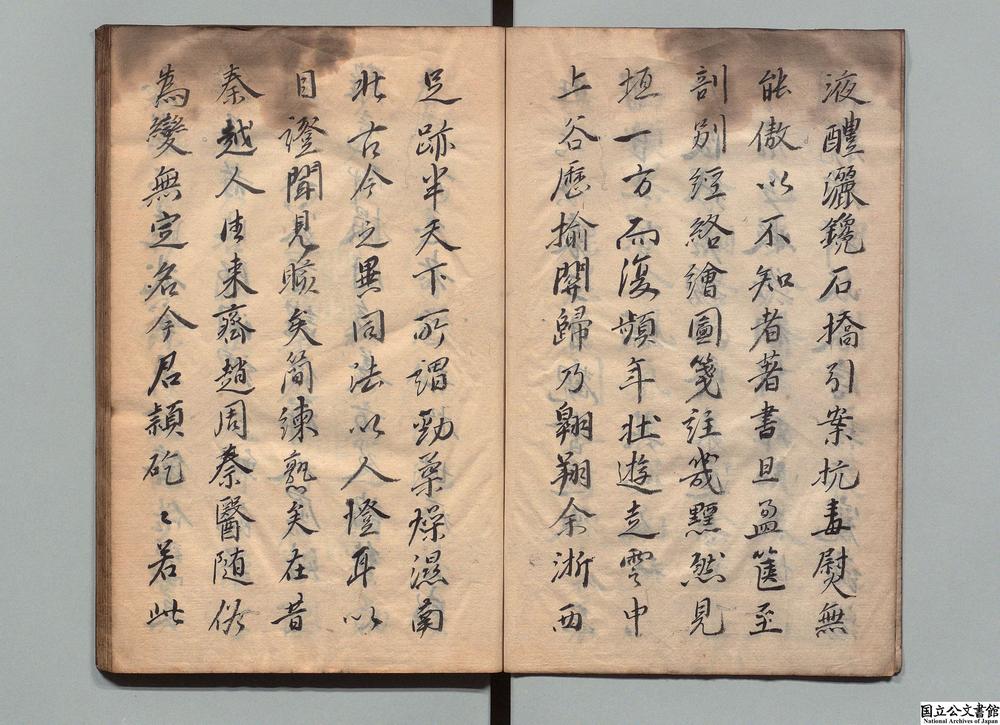 液醴灑鑱石撟引案抗毒熨無
能傲以不知者著書且盈篋至
剖別經絡繪圖箋註幾黙然見
垣一方而復頻年壯遊走雲中
上谷歷揄關歸乃翺翔余浙西
足跡半天下所謂勁藁燥濕南
北古今之異同法以人證耳以
目證聞見賅矣簡練憊矣在昔
秦越人徃來齊趙周秦醫隨俗
為變無定名今君穎矻〻若此
国立公文書館
National Archives of Japan